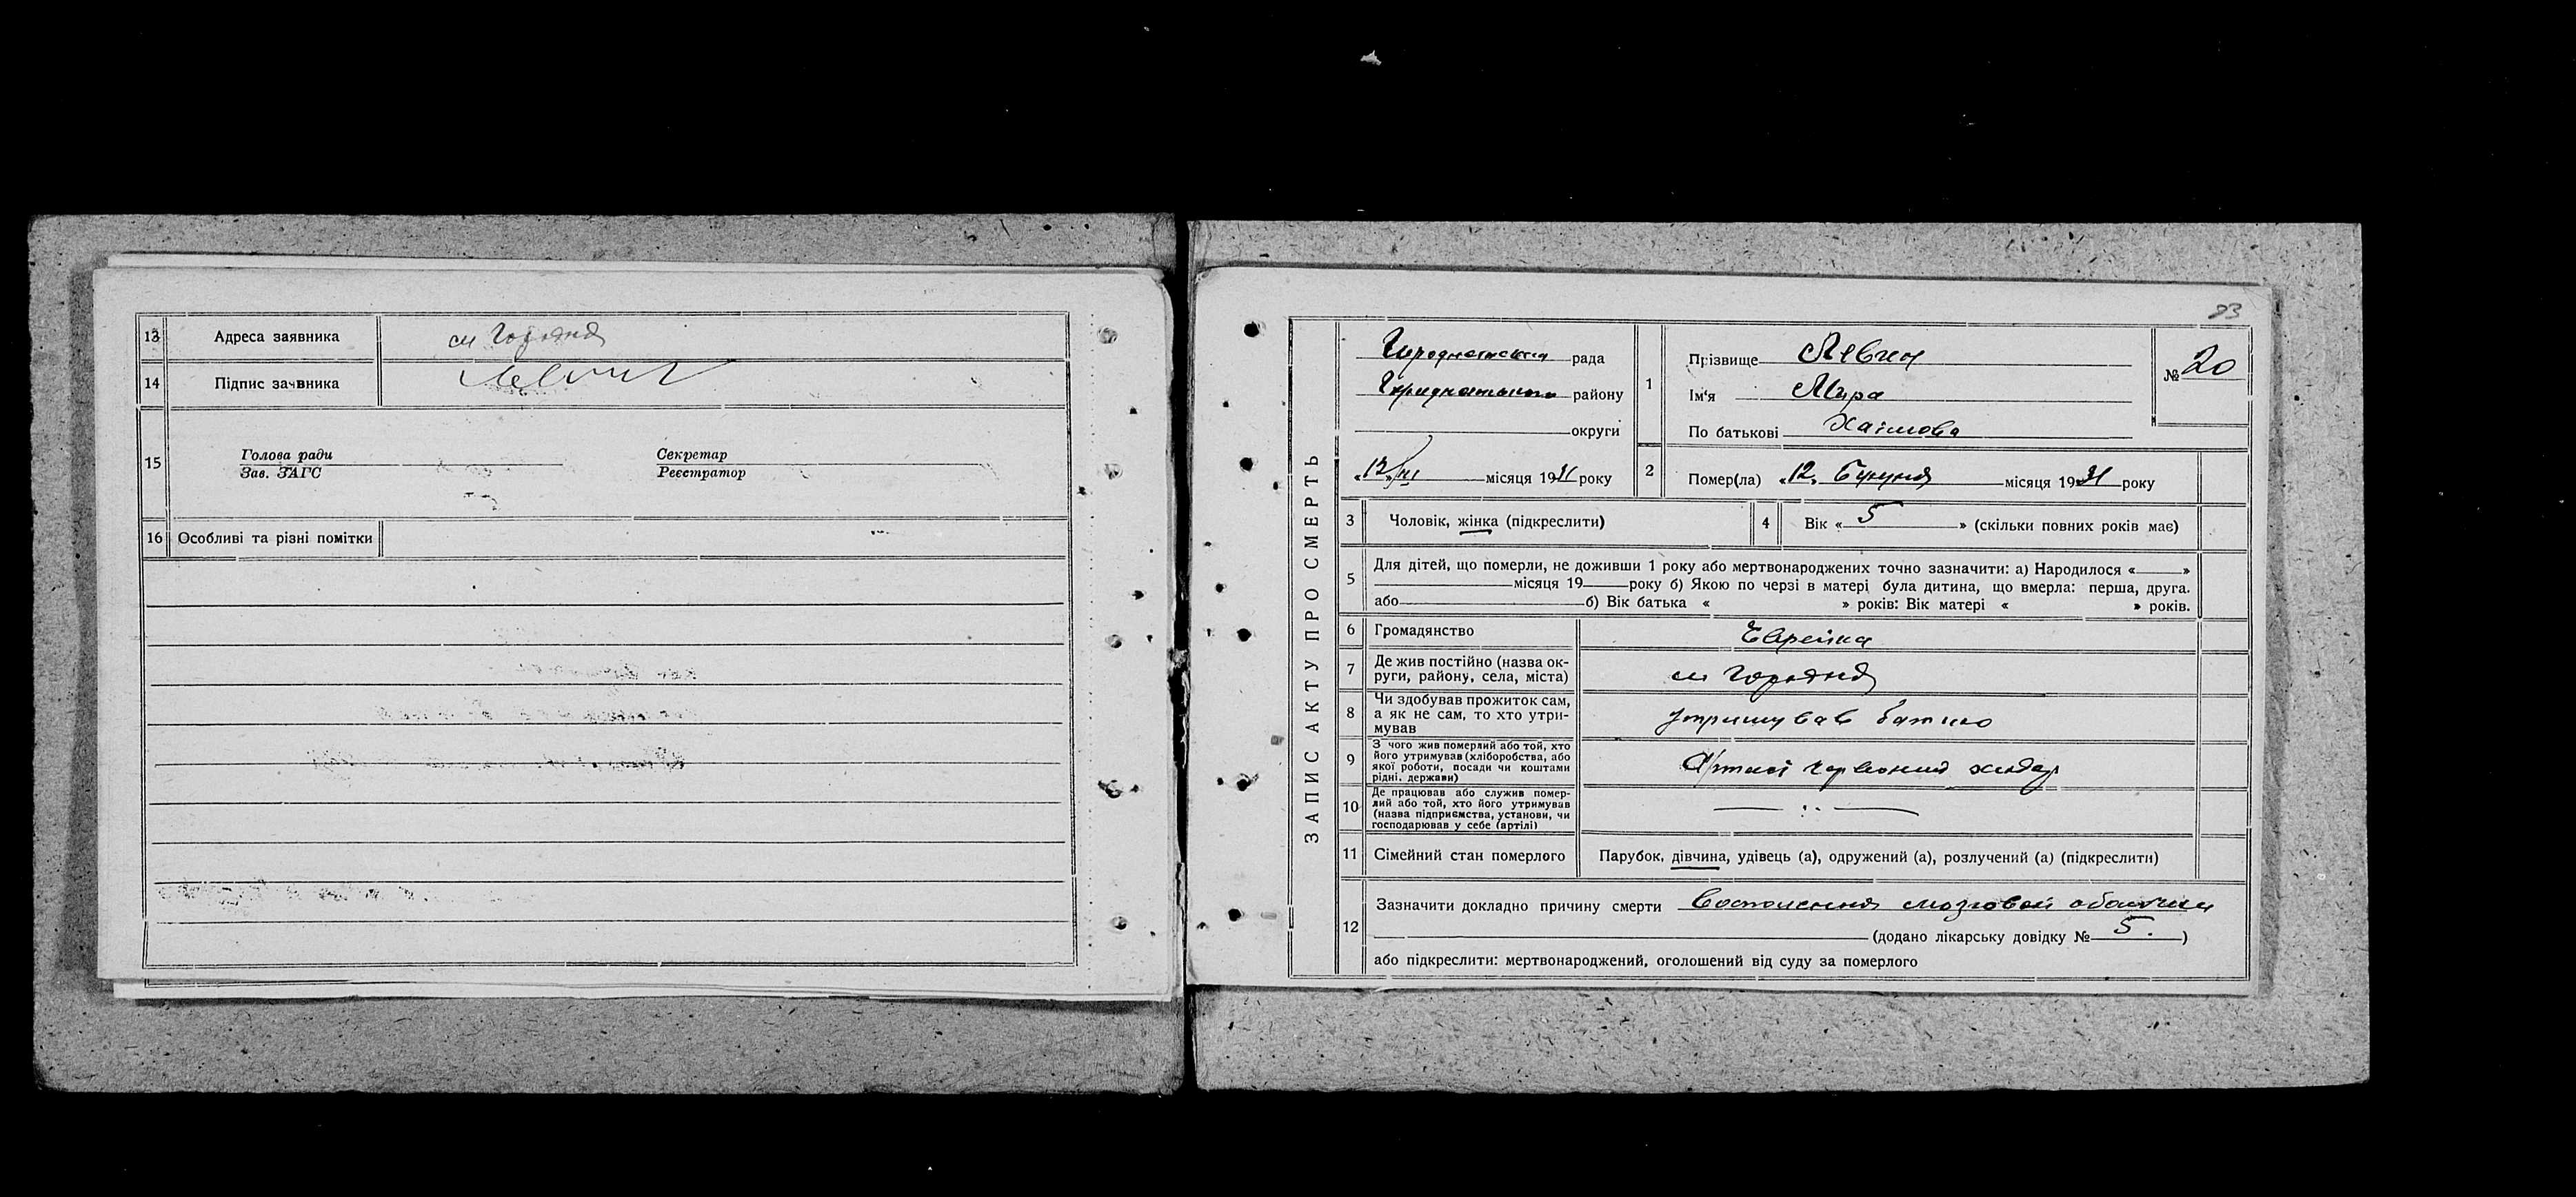 13 Адреса заявника м Городня
14 Підпис заявника
15 Голова ради Секретар
Зав. ЗАГС Реєстратор
16 Особливі та різні помітки
83
ЗАПИС АКТУ ПРО СМЕРТЬ
рада
району
округи
«12» місяця 1931 року
1 Прізвище Левин
Ім'я Мира
По батькові Хаімова
№ 20
2 Помер(ла) «12» місяця 1931 року
3 Чоловік, жінка (підкреслити)
4 Вік « 5 » (скільки повних років має)
5 Для дітей, що померли, не доживши 1 року або мертвонароджених точно зазначити: а) Народилося « »
місяця 19 року б) Якою по черзі в матері була дитина, що вмерла: перша, друга.
або б) Вік батька « » років: Вік матері « » років.
6 Громадянство Еврейка
7 Де жив постійно (назва ок-
руги, району, села, міста) м Городня
8 Чи здобував прожиток сам,
а як не сам, то хто утри-
мував утримував батько
9 З чого жив померлий або той, хто
його утримував (хліборобства, або
якої роботи, посади чи коштами
рідні, держави) Артілі
10 Де працював або служив помер-
лий або той, хто його утримував
(назва підприємства, установи, чи
господарював у себе (артілі)
11 Сімейний стан померлого Парубок, дівчина, удівець (а), одружений (а), розлучений (а) (підкреслити)
12 Зазначити докладно причину смерти мозговой
(додано лікарську довідку № 5.)
або підкреслити: мертвонароджений, оголошений від суду за померлого